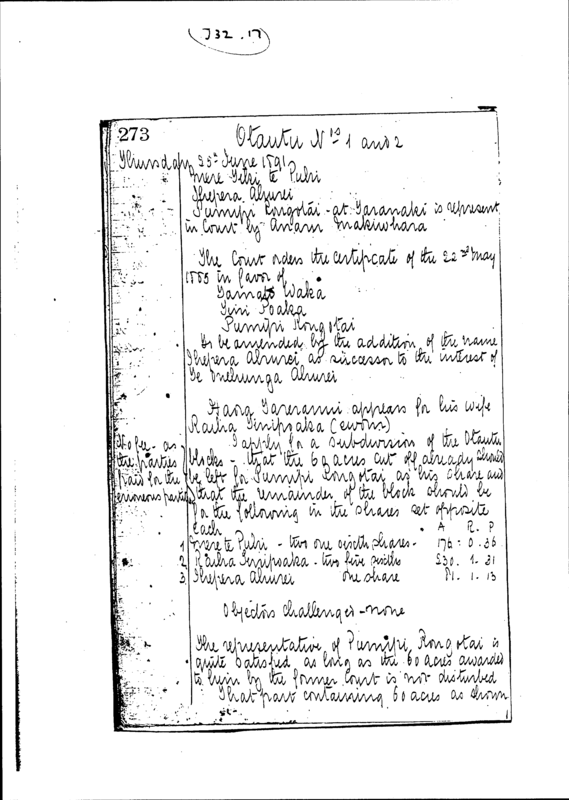 J32.17
273
Otautu Nos 1 and 2
Thursday 25th June 1891
Mere Teki te Puhi
Thepera Ahurei
Pumipi Rongotai - at Taranaki is represent
in Court by Anaru Makiwhara
The Court orders the certificate of the 22nd May
1888 in favor of
Tamati Waka
Tini Poaka
Pumipi Rongotai
to be amended by the addition of the name
Thepera Ahurei as successor to the interest of
Te Onehunga Ahurei
appears for his wife
Raiha Tinipoaka (sworn)
I apply for a subdivision of the Otautu
No fee - as
the parties
paid for the
erroneous partition
blocks - that the 60 acres cut off already should
be left for Pumipi Rongotai as his share and
that the remainder of the block should be
for the following in the shares set opposite
each - A R. P
1 Mere te Puhi - two one sixth shares - 176 - 0 - 36
2 Raiha Tinipoaka - two five sixths 530. 1. 31
3 Thepera Ahurei one share 1. 13
Objectors challenged - none
The representative of Pumipi Rongotai is
quite satisfied as long as the 60 acres awarded
to him by the former Court is not disturbed
That part containing 60 acres as shown